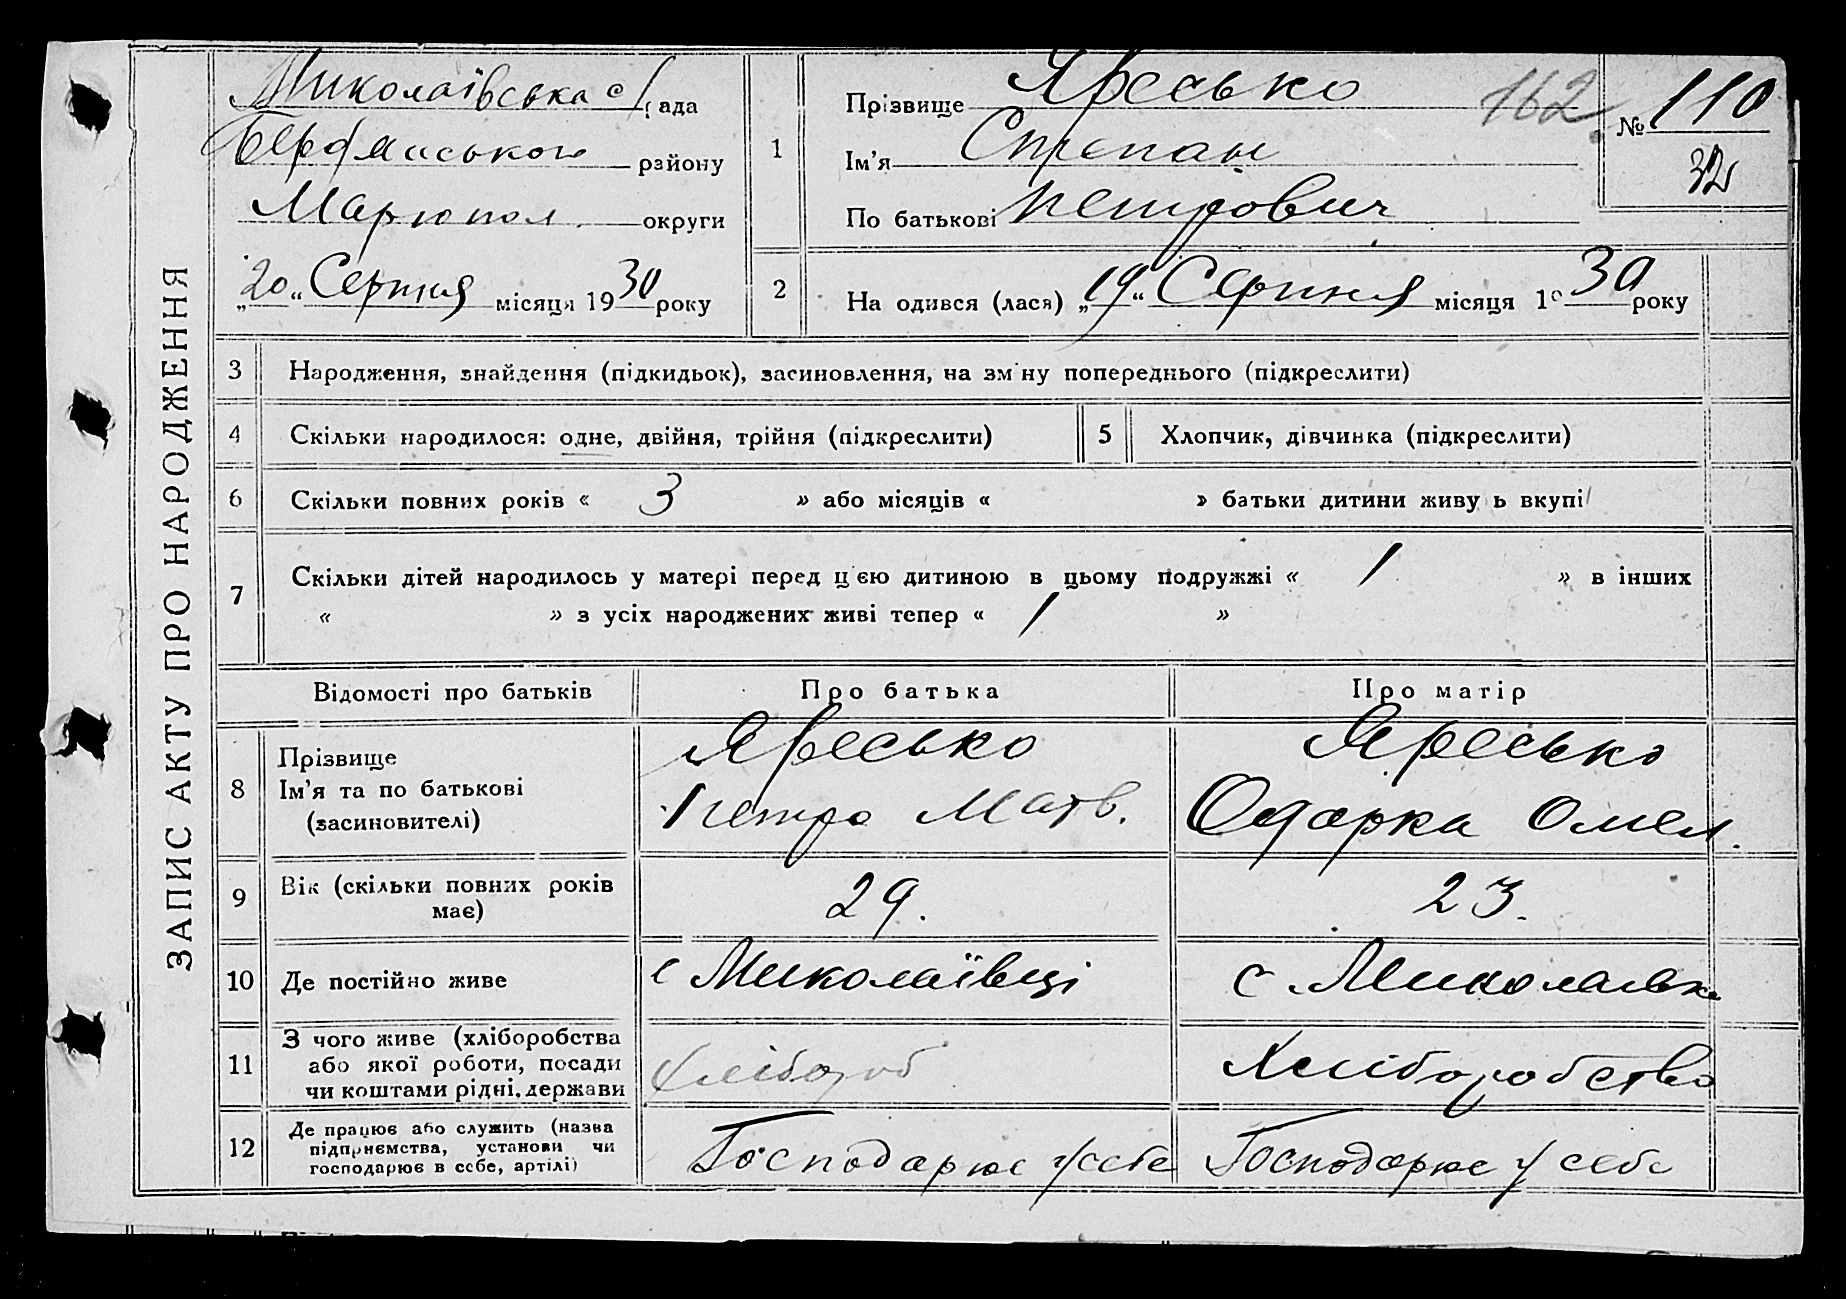 ЗАПИС АКТУ ПРО НАРОДЖЕННЯ
Миколаївська с/рада
Бердянського району
Маріюпол округи
„20“ Серпня місяця 1930 року
1
Прізвище Яресько
Ім'я Степан
По батькові Петрович
162
№ 110
32
2
Народився (лася) „19“ Серпня місяця 1930 року
3 Народження, знайдення (підкидьок), засиновлення, на зміну попереднього (підкреслити)
4 Скільки народилося: одне, двійня, трійня (підкреслити)
5 Хлопчик, дівчинка (підкреслити)
6 Скільки повних років « 3 » або місяців « » батьки дитини живуть вкупі
7 Скільки дітей народилось у матері перед цією дитиною в цьому подружжі « 1 » в інших
« » з усіх народжених живі тепер « 1 »
Відомості про батьків Про батька Про матір
8 Прізвище
Ім'я та по батькові
(засиновителі)
Яресько
Петро Матв.
Яресько
Одарка Омел.
9 Вік (скільки повних років
має)
29.
23.
10 Де постійно живе
с Миколаївці
с. Миколаївк
11 З чого живе (хліборобства
або якої роботи, посади
чи коштами рідні, держави
хлібороб
Хліборобство
12 Де працює або служить (назва
підприємства, установи чи
господарює в себе, артілі)
Господарює у себе
Господарює у себе